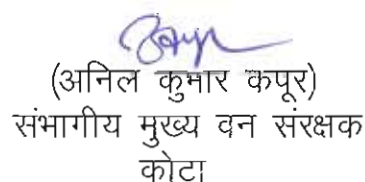 (अनिल कुमार कपूर)
संभागीय मुख्य वन संरक्षक
कोटा